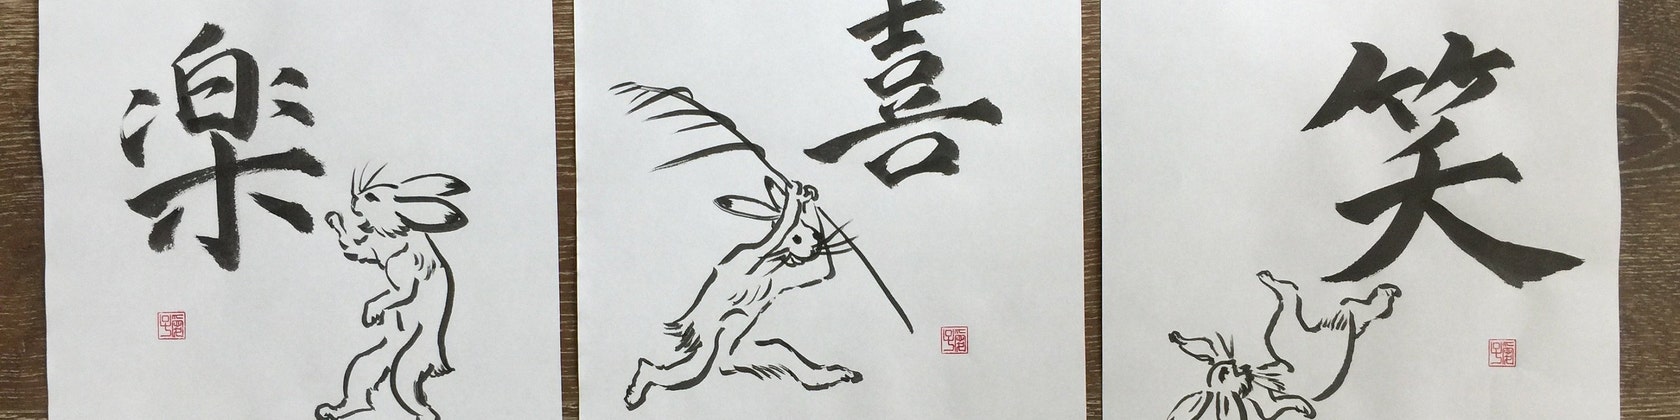 楽
喜
笑